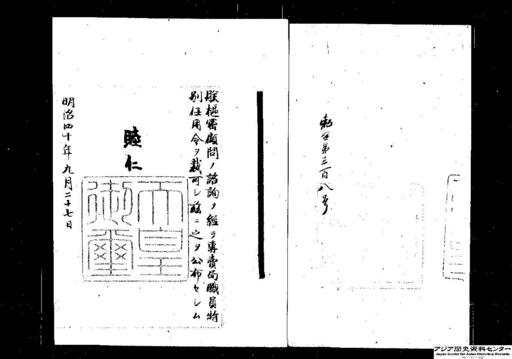 勅令第三百八号
朕樞密顧問ノ諮詢ヲ經テ專賣局職員特
別任用令ヲ裁可シ茲ニ之ヲ公布セシム
睦仁
天皇御璽
明治四十年九月二十七日
アジア歴史資料センター
Japan Center for Asian Historical Records